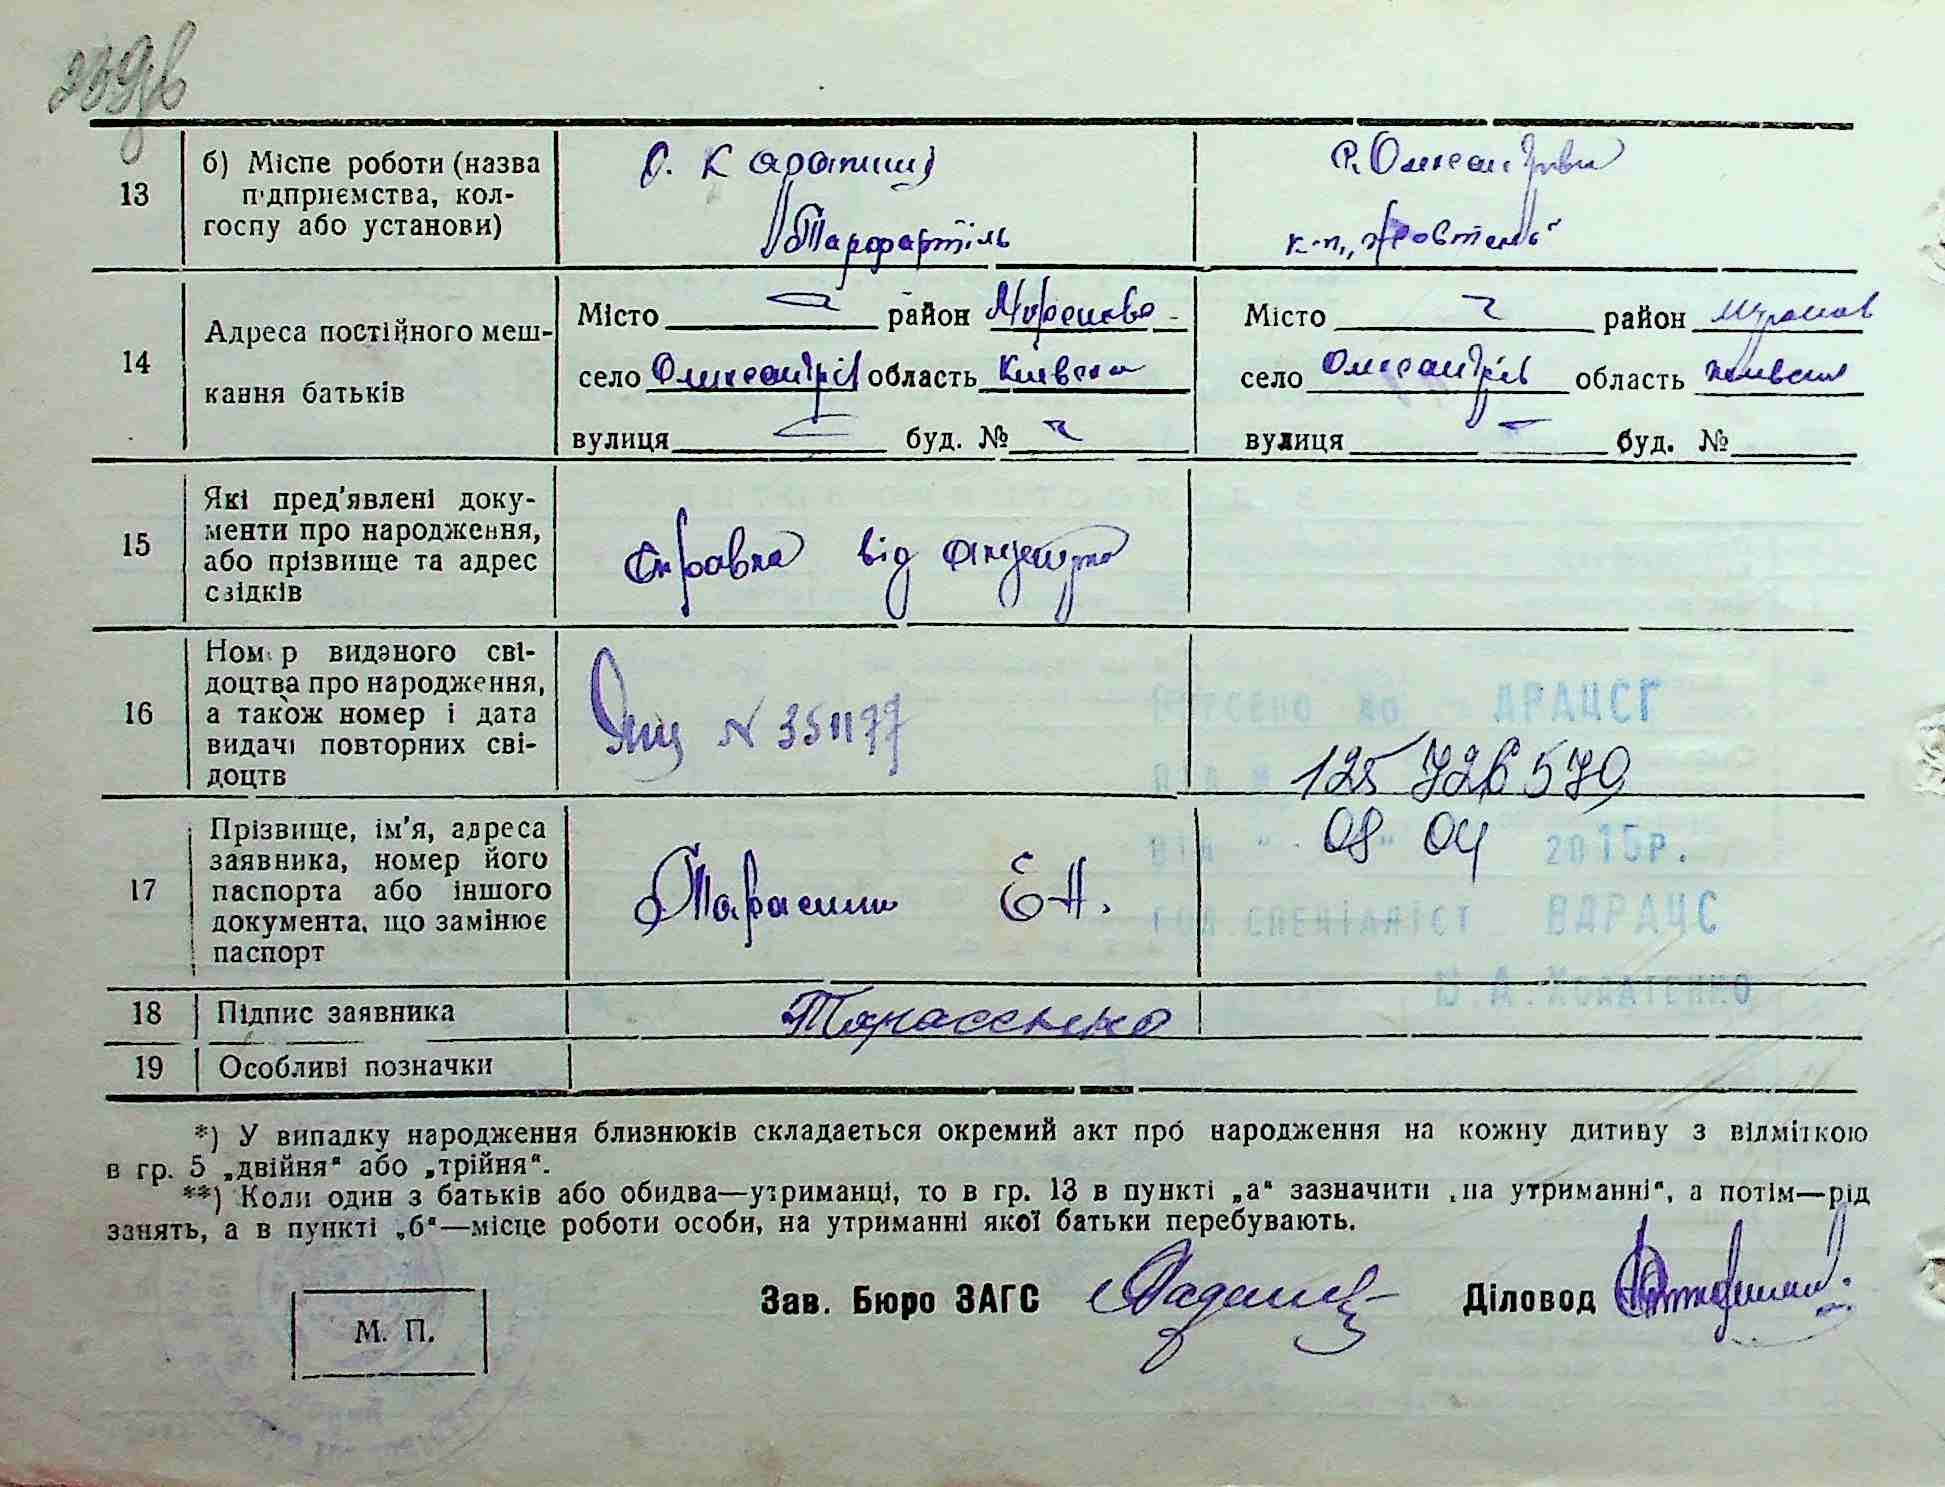 239зв
13
б) Місце роботи (назва
підприємства, кол-
госпу або установи)
с. Карапиші
Тарфартіль
к-п „Жовтень“
14
Адреса постійного меш-
кання батьків
Місто — район
село Олександрів область Київська
вулиця — буд. №
Місто район
село Олександрів область Київська
вулиця — буд. №
15
Які пред'явлені доку-
менти про народження,
або прізвище та адрес
свідків
Справка від акушерки
16
Номер виданого сві-
доцтва про народження,
а також номер і дата
видачі повторних сві-
доцтв
№ 351177
ВНЕСЕНО ДО ДРАЦСГ
ПІД № 125726579
ВІД " 08 " 04 2015р.
ГОЛ.СПЕЦІАЛІСТ ВДРАЦС
17
Прізвище, ім'я, адреса
заявника, номер його
паспорта або іншого
документа, що замінює
паспорт
Тарасенко Е.А.
18
Підпис заявника
Тарасенко
19
Особливі позначки
*) У випадку народження близнюків складається окремий акт про народження на кожну дитину з відміткою
в гр. 5 „двійня“ або „трійня“.
**) Коли один з батьків або обидва—утриманці, то в гр. 13 в пункті „а“ зазначити „на утриманні“, а потім—рід
занять, а в пункті „б“—місце роботи особи, на утриманні якої батьки перебувають.
Зав. Бюро ЗАГС
Діловод
М. П.